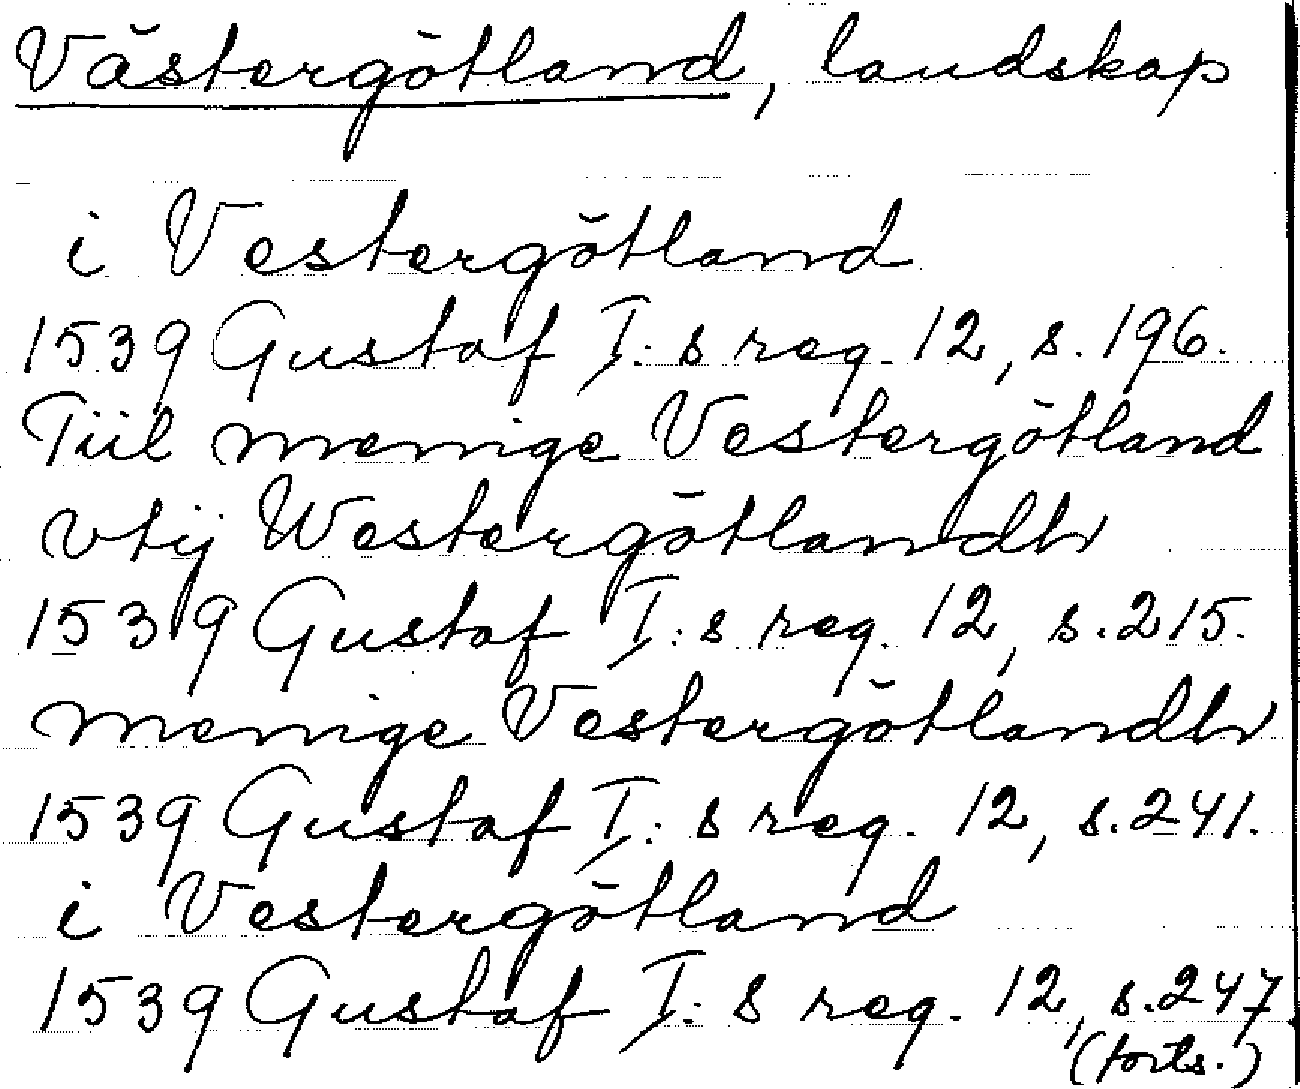 Västergötland, landskap
i Vestergötland
1539 Gustaf I:s reg. 12, s. 196.
Tiil menige Vestergötland
vtij Westergötlandh
1539 Gustaf I:s reg. 12, s. 215.
menige Vestergötlandh
1539 Gustaf I:s reg. 12, s. 241.
i Vestergötland
1539 Gustaf I:s reg. 12, s. 247.
(forts.)